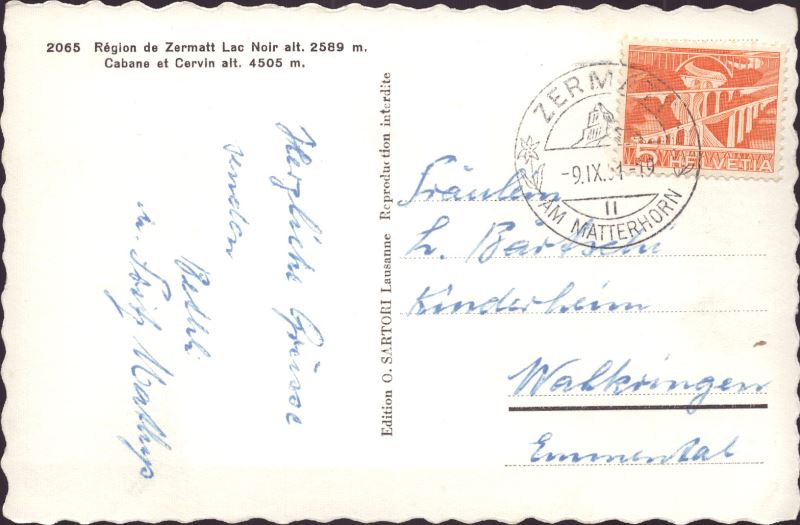 2065 Région de Zermatt Lac Noir alt. 2589 m.
Cabane et Cervin alt. 4505 m.
Herzliche Grüsse
senden
Bethli
u. Fritz Mathys
Edition O. SARTORI Lausanne Reproduction interdite
ZERMATT
-9.IX.51.-19
II
AM MATTERHORN
5 HELVETIA
Fräulein
L. Bärtschi
Kinderheim
Walkringen
Emmental